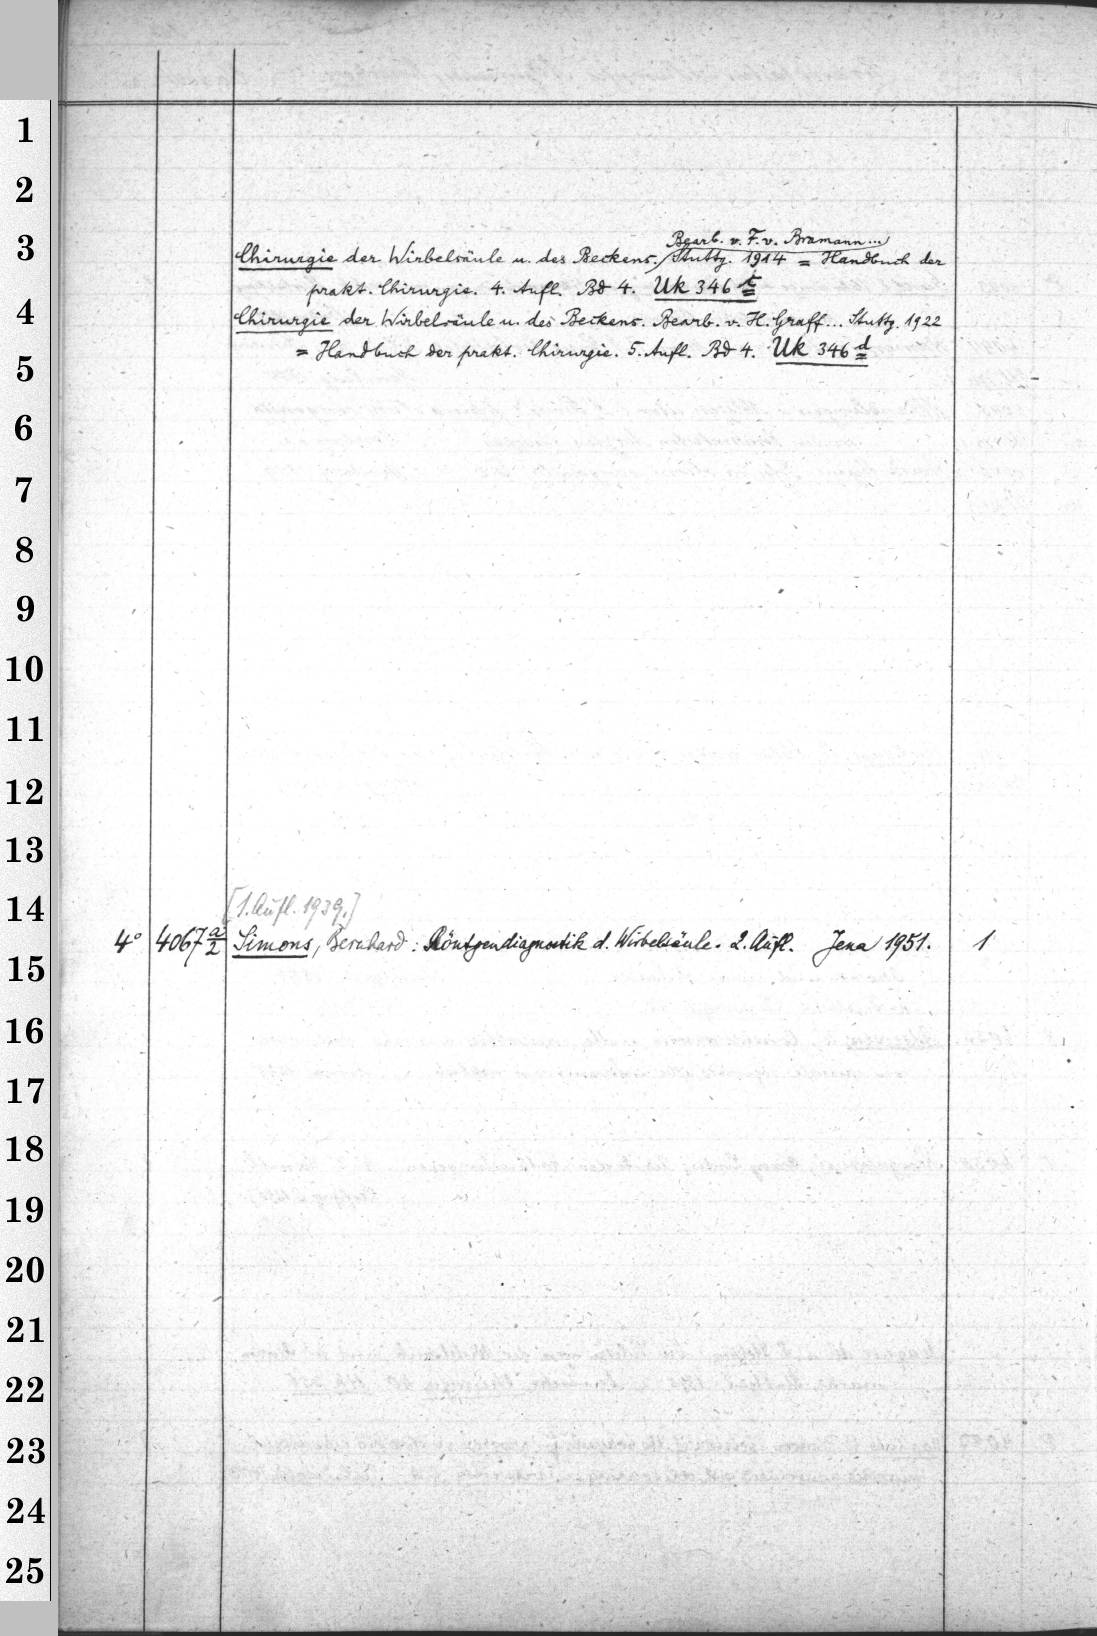 1
2
3
4
5
6
7
8
9
10
11
12
13
14
15
16
17
18
19
20
21
22
23
24
25
Bearb. v. F. v. Bramann...
Chirurgie der Wirbelsäule u. des Beckens. Stuttg. 1914 = Handbuch der
prakt. Chirurgie. 4. Aufl. Bd 4. Uk 346 c
Chirurgie der Wirbelsäule u. des Beckens. Bearb. v. H. Graff... Stuttg. 1922
= Handbuch der prakt. Chirurgie. 5. Aufl. Bd 4. Uk 346 d
[1. Aufl. 1939.]
4° 4067 a/2 Simons, Bernhard: Röntgendiagnostik d. Wirbelsäule. 2. Aufl. Jena 1951. 1